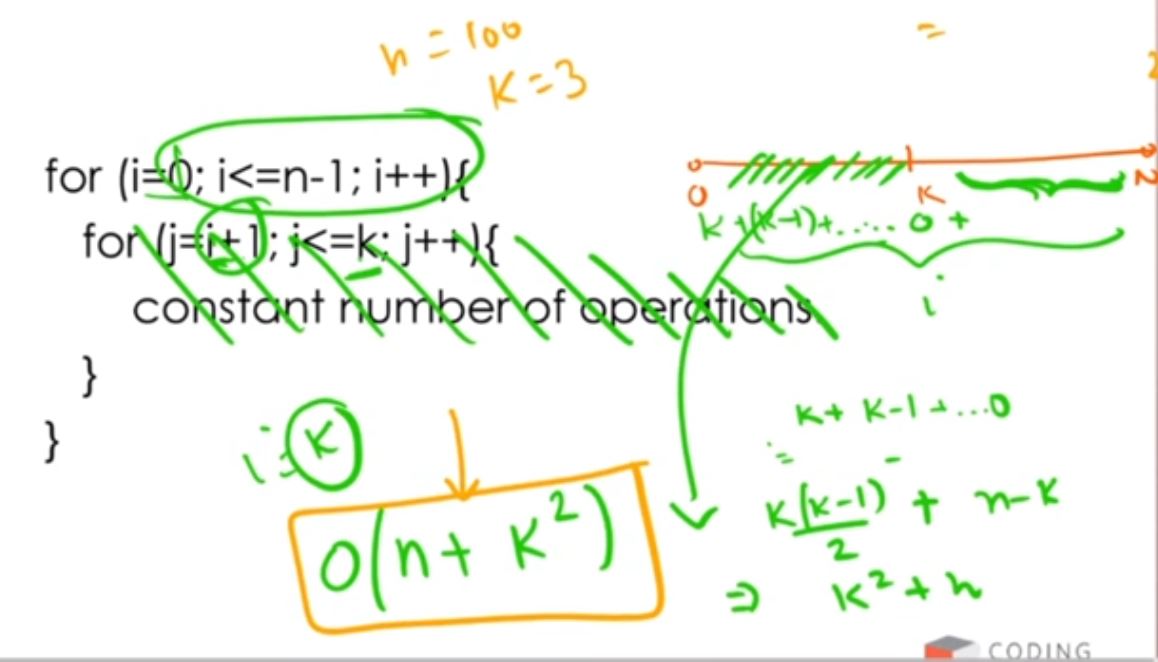 n = 100
K = 3
=
for (i=0; i<=n-1; i++){
for (j=i+1; j<=k; j++){
constant number of operations
}
}
0 K
K+(K-1)+..... 0 +
i
i = K
O(n + K²)
K + K-1 + ...0
=
K(K-1)/2 + n-K
⇒ K² + n
CODING